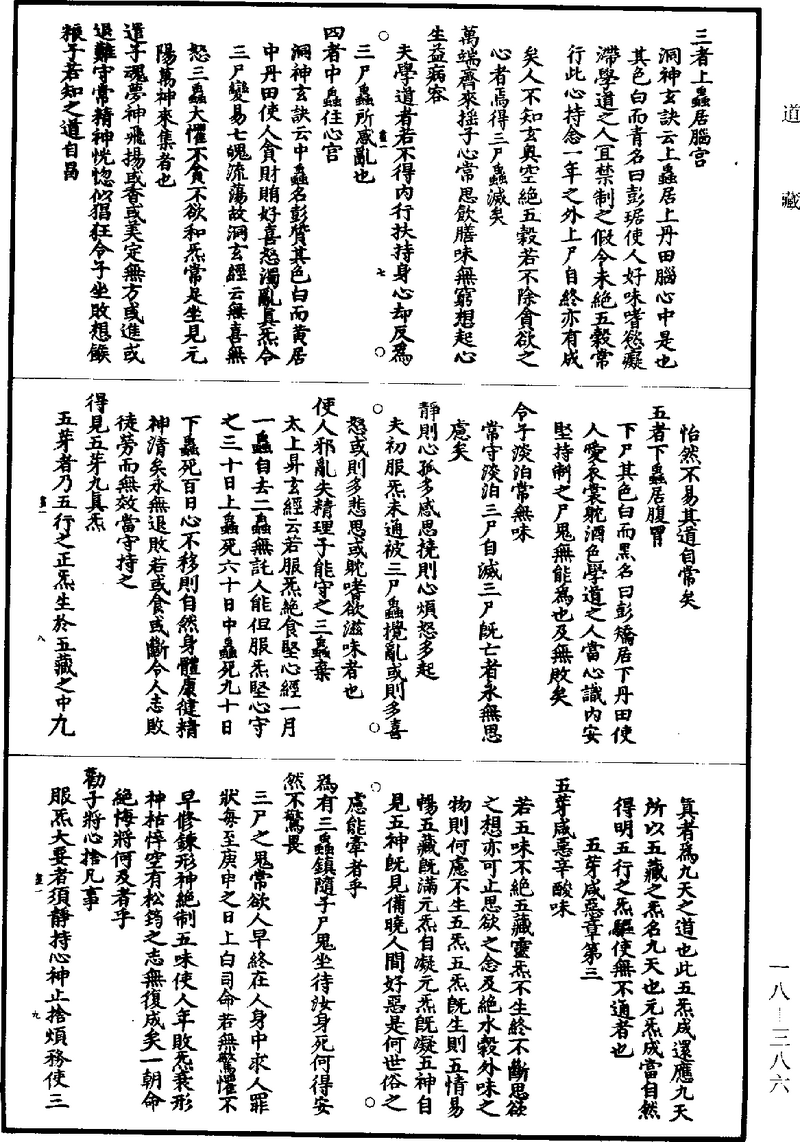 道藏
三者上蟲居腦宫
洞神玄訣云上蟲居上丹田腦心中是也
其色白而青名曰彭琚使人好味嗜慾癡
滯學道之人宜禁制之假令未絶五糓常
行此心持念一年之外上尸自終亦有成
矣人不知玄奥空絶五糓若不除貪欲之
心者焉得三尸蟲滅矣
萬端齊來揺子心常思飲膳味無窮想起心
生益病容
夫學道者若不得内行扶持身心却反爲
三尸蟲所惑亂也
四者中蟲住心宫
洞神玄訣云中蟲名彭質其色白而黄居
中丹田使人貪財賄好喜怒濁亂真炁令
三尸變易七魄流蕩故洞玄經云無喜無
怒三蟲大懼不貪不欲和炁常足坐見元
陽萬神來集者也
遣子魂夢神飛揚或香或美定無方或進或
退難守常精神恍惚似猖狂令子坐敗想餱
粮子若知之道自昌
怡然不易其道自常矣
五者下蟲居腹胃
下尸其色白而黑名曰彭矯居下丹田使
人愛衣裳躭酒色學道之人當心識内安
堅持制之尸鬼無能爲也及無敗矣
令子淡泊常無味
常守淡泊三尸自滅三尸既亡者永無思
慮矣
静則心孤多感思撓則心煩怒多起
夫初服炁未通被三尸蟲攪亂或則多喜
怒或則多悲思或躭嗜欲滋味者也
使人邪亂失精理子能守之三蟲棄
太上昇玄經云若服炁絶食堅心經一月
一蟲自去二蟲無託人能但服炁堅心守
之三十日上蟲死六十日中蟲死九十日
下蟲死百日心不移則自然身體康健精
神清矣永無退敗若或食或斷令人志敗
徒勞而無效當守持之
得見五芽九真炁
五芽者乃五行之正炁生於五藏之中九
真者爲九天之道也此五炁成還應九天
所以五藏之炁名九天也元炁成當自然
得明五行之炁驅使無不通者也
五芽咸惡章第三
五芽咸惡辛酸味
若五味不絶五藏靈炁不生終不斷思欲
之想亦可止思欲之念及絶水糓外味之
物則何慮不生五炁五炁既生則五情易
暢五藏既滿元炁自凝元炁既凝五神自
見五神既見備曉人間好惡是何世俗之
慮能牽者乎
爲有三蟲鎮隨子尸鬼坐待汝身死何得安
然不驚畏
三尸之鬼常欲人早終在人身中求人罪
狀每至庚申之日上白司命若無驚懼不
早修鍊形神絶制五味使人年敗炁衰形
神枯悴空有松筠之志無復成矣一朝命
絶悔將何及者乎
勸子將心捨凡事
服炁大要者須静持心神止捨煩務使三
一八—三八六